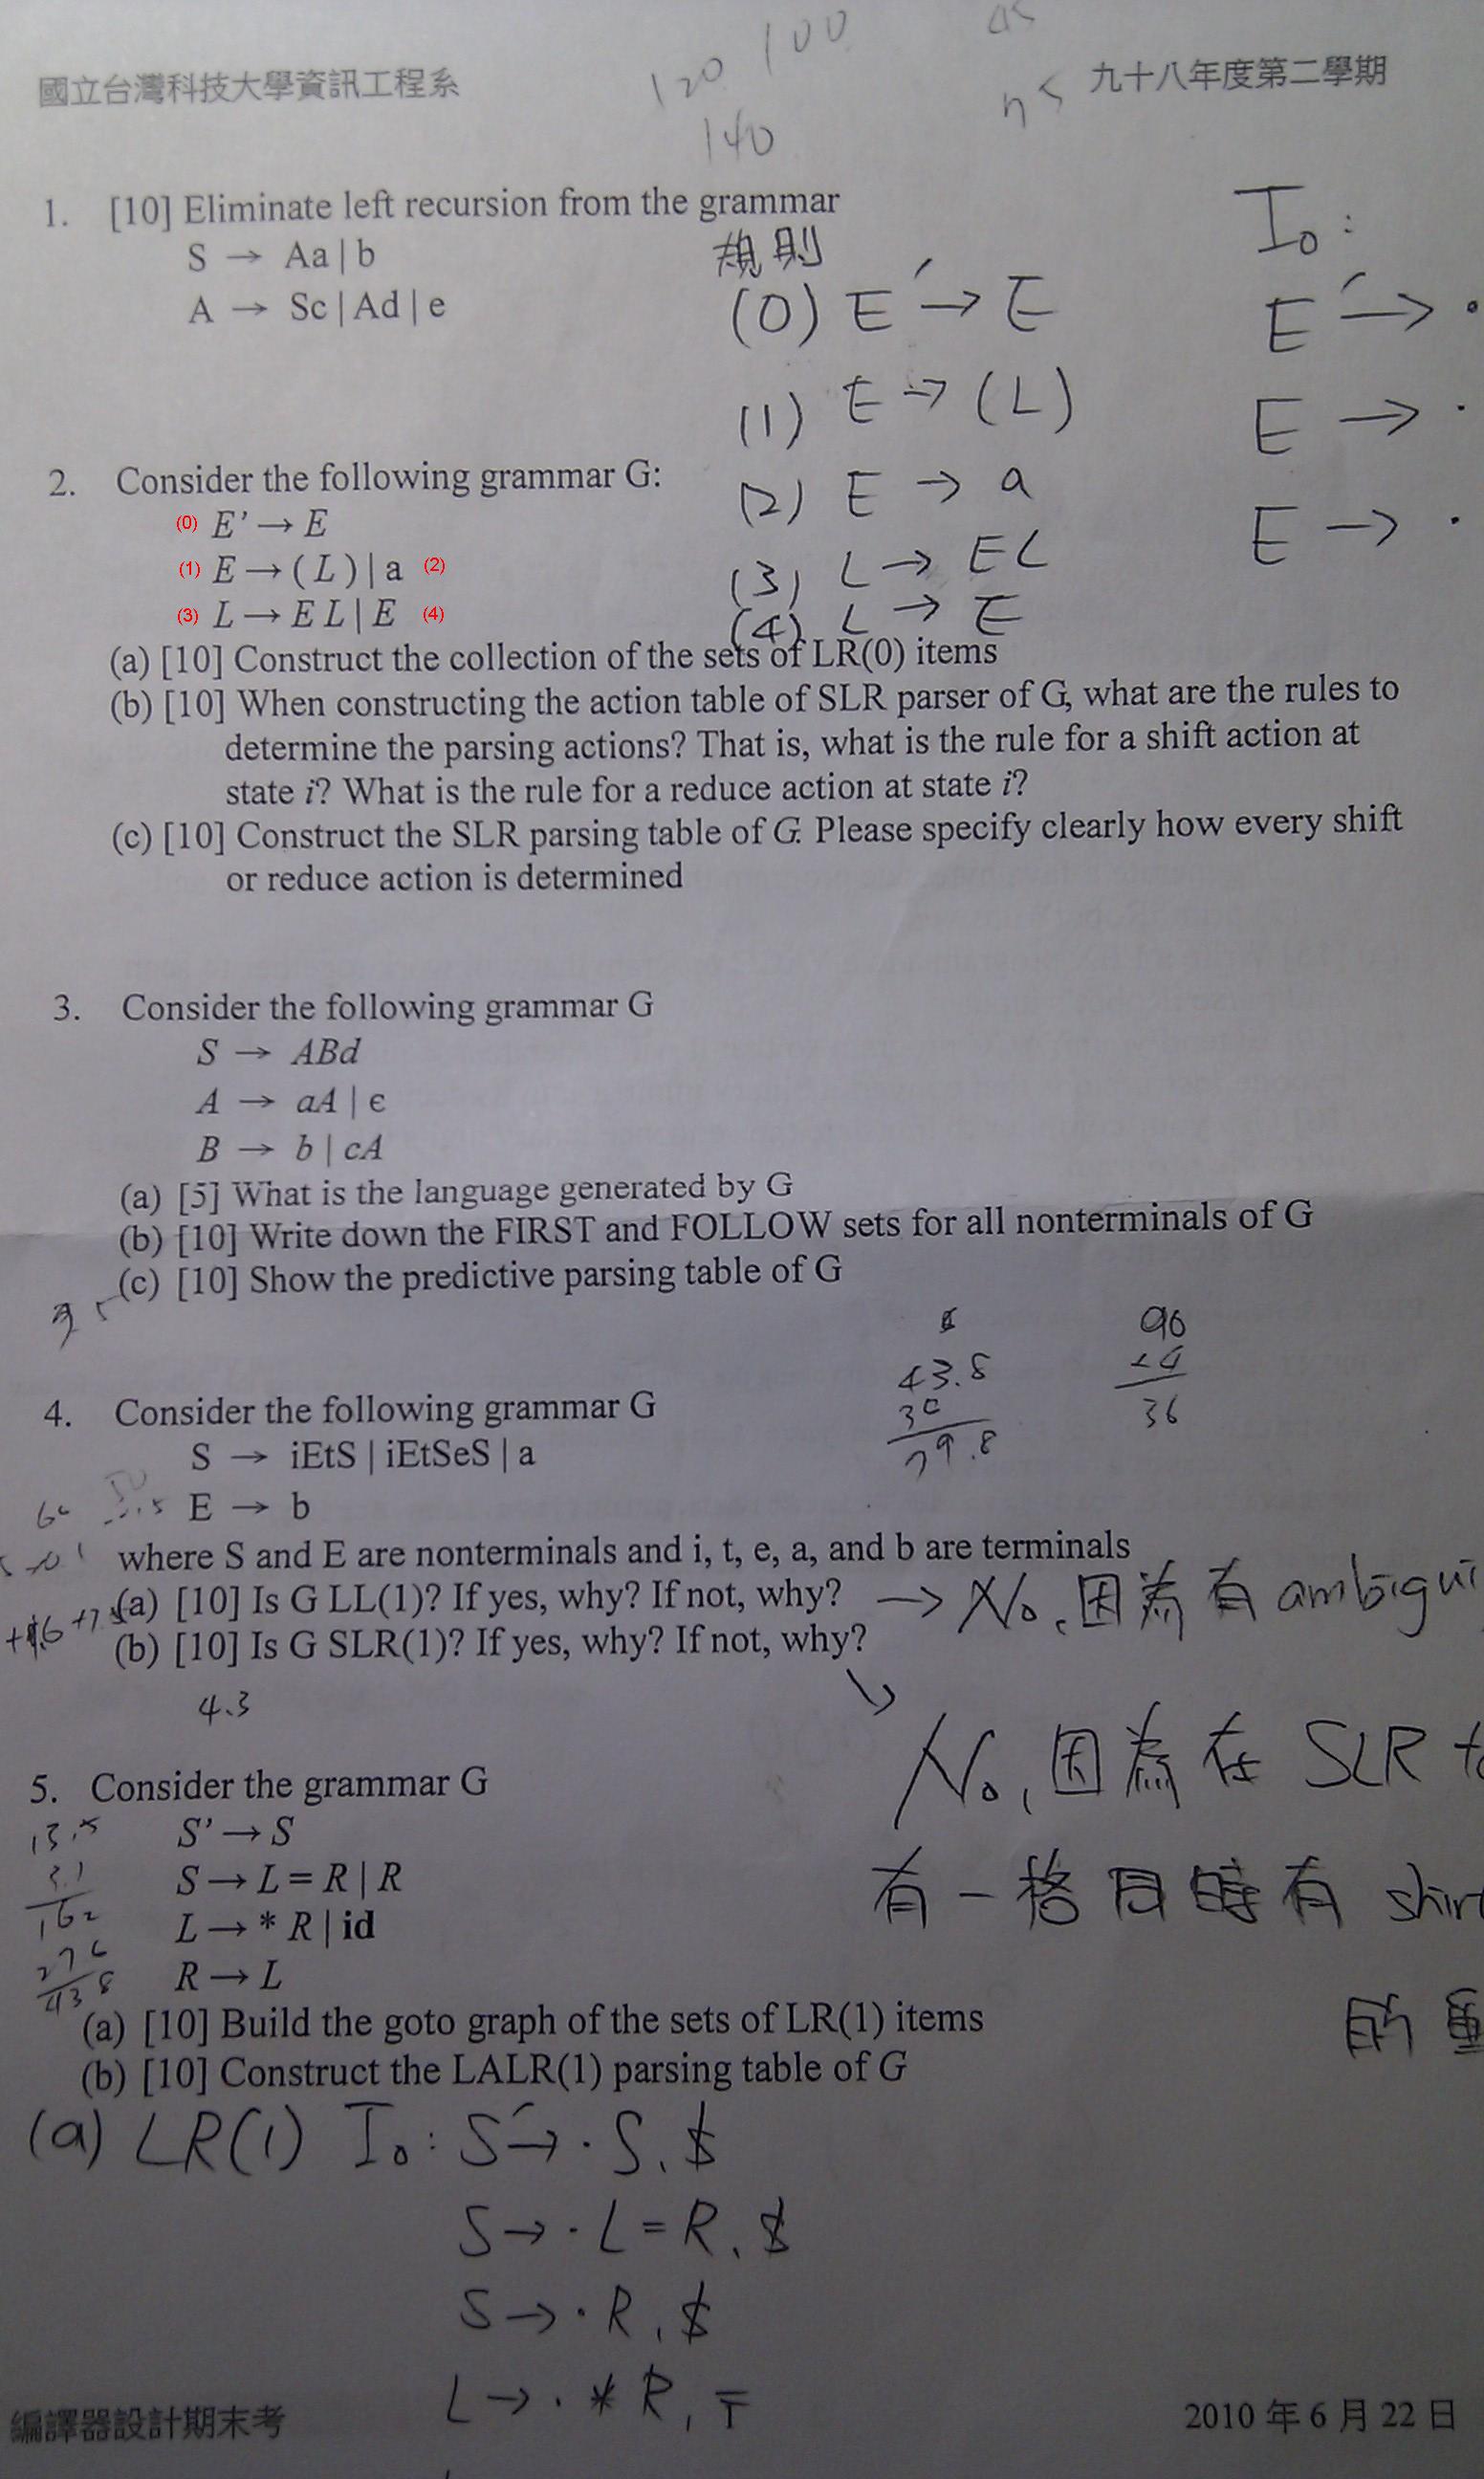 120 100
國立台灣科技大學資訊工程系
九十八年度第二學期
140
1. [10] Eliminate left recursion from the grammar
S → Aa | b
A → Sc | Ad | e
規則
(0) E' → E
(1) E → (L)
(2) E → a
(3) L → EL
(4) L → E
I₀ :
E' → ·
E → ·
E → ·
2. Consider the following grammar G:
(0) E' → E
(1) E → ( L ) | a (2)
(3) L → E L | E (4)
(a) [10] Construct the collection of the sets of LR(0) items
(b) [10] When constructing the action table of SLR parser of G, what are the rules to
determine the parsing actions? That is, what is the rule for a shift action at
state i? What is the rule for a reduce action at state i?
(c) [10] Construct the SLR parsing table of G. Please specify clearly how every shift
or reduce action is determined
3. Consider the following grammar G
S → ABd
A → aA | ϵ
B → b | cA
(a) [5] What is the language generated by G
(b) [10] Write down the FIRST and FOLLOW sets for all nonterminals of G
(c) [10] Show the predictive parsing table of G
90
43.8
36
4. Consider the following grammar G
S → iEtS | iEtSeS | a
E → b
where S and E are nonterminals and i, t, e, a, and b are terminals
(a) [10] Is G LL(1)? If yes, why? If not, why? → No, 因為有 ambigui
(b) [10] Is G SLR(1)? If yes, why? If not, why?
4.3
No, 因為在 SLR
有一格同時有
的
5. Consider the grammar G
S' → S
S → L = R | R
L → * R | id
R → L
(a) [10] Build the goto graph of the sets of LR(1) items
(b) [10] Construct the LALR(1) parsing table of G
(a) LR(1) I₀ : S' → · S, $
S → · L = R, $
S → · R, $
L → · * R, =
編譯器設計期末考
2010 年 6 月 22 日